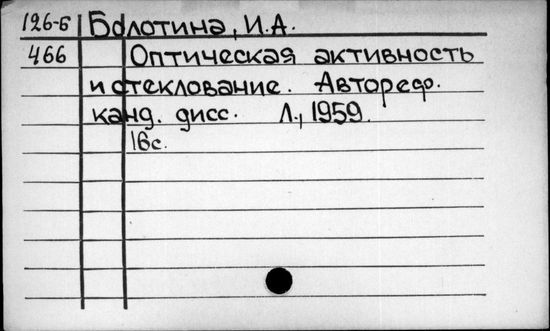 126-Б Болотина, И.А.
466 Оптическая активность
и стеклование. Автореф.
канд. дисс. Л., 1959.
16с.